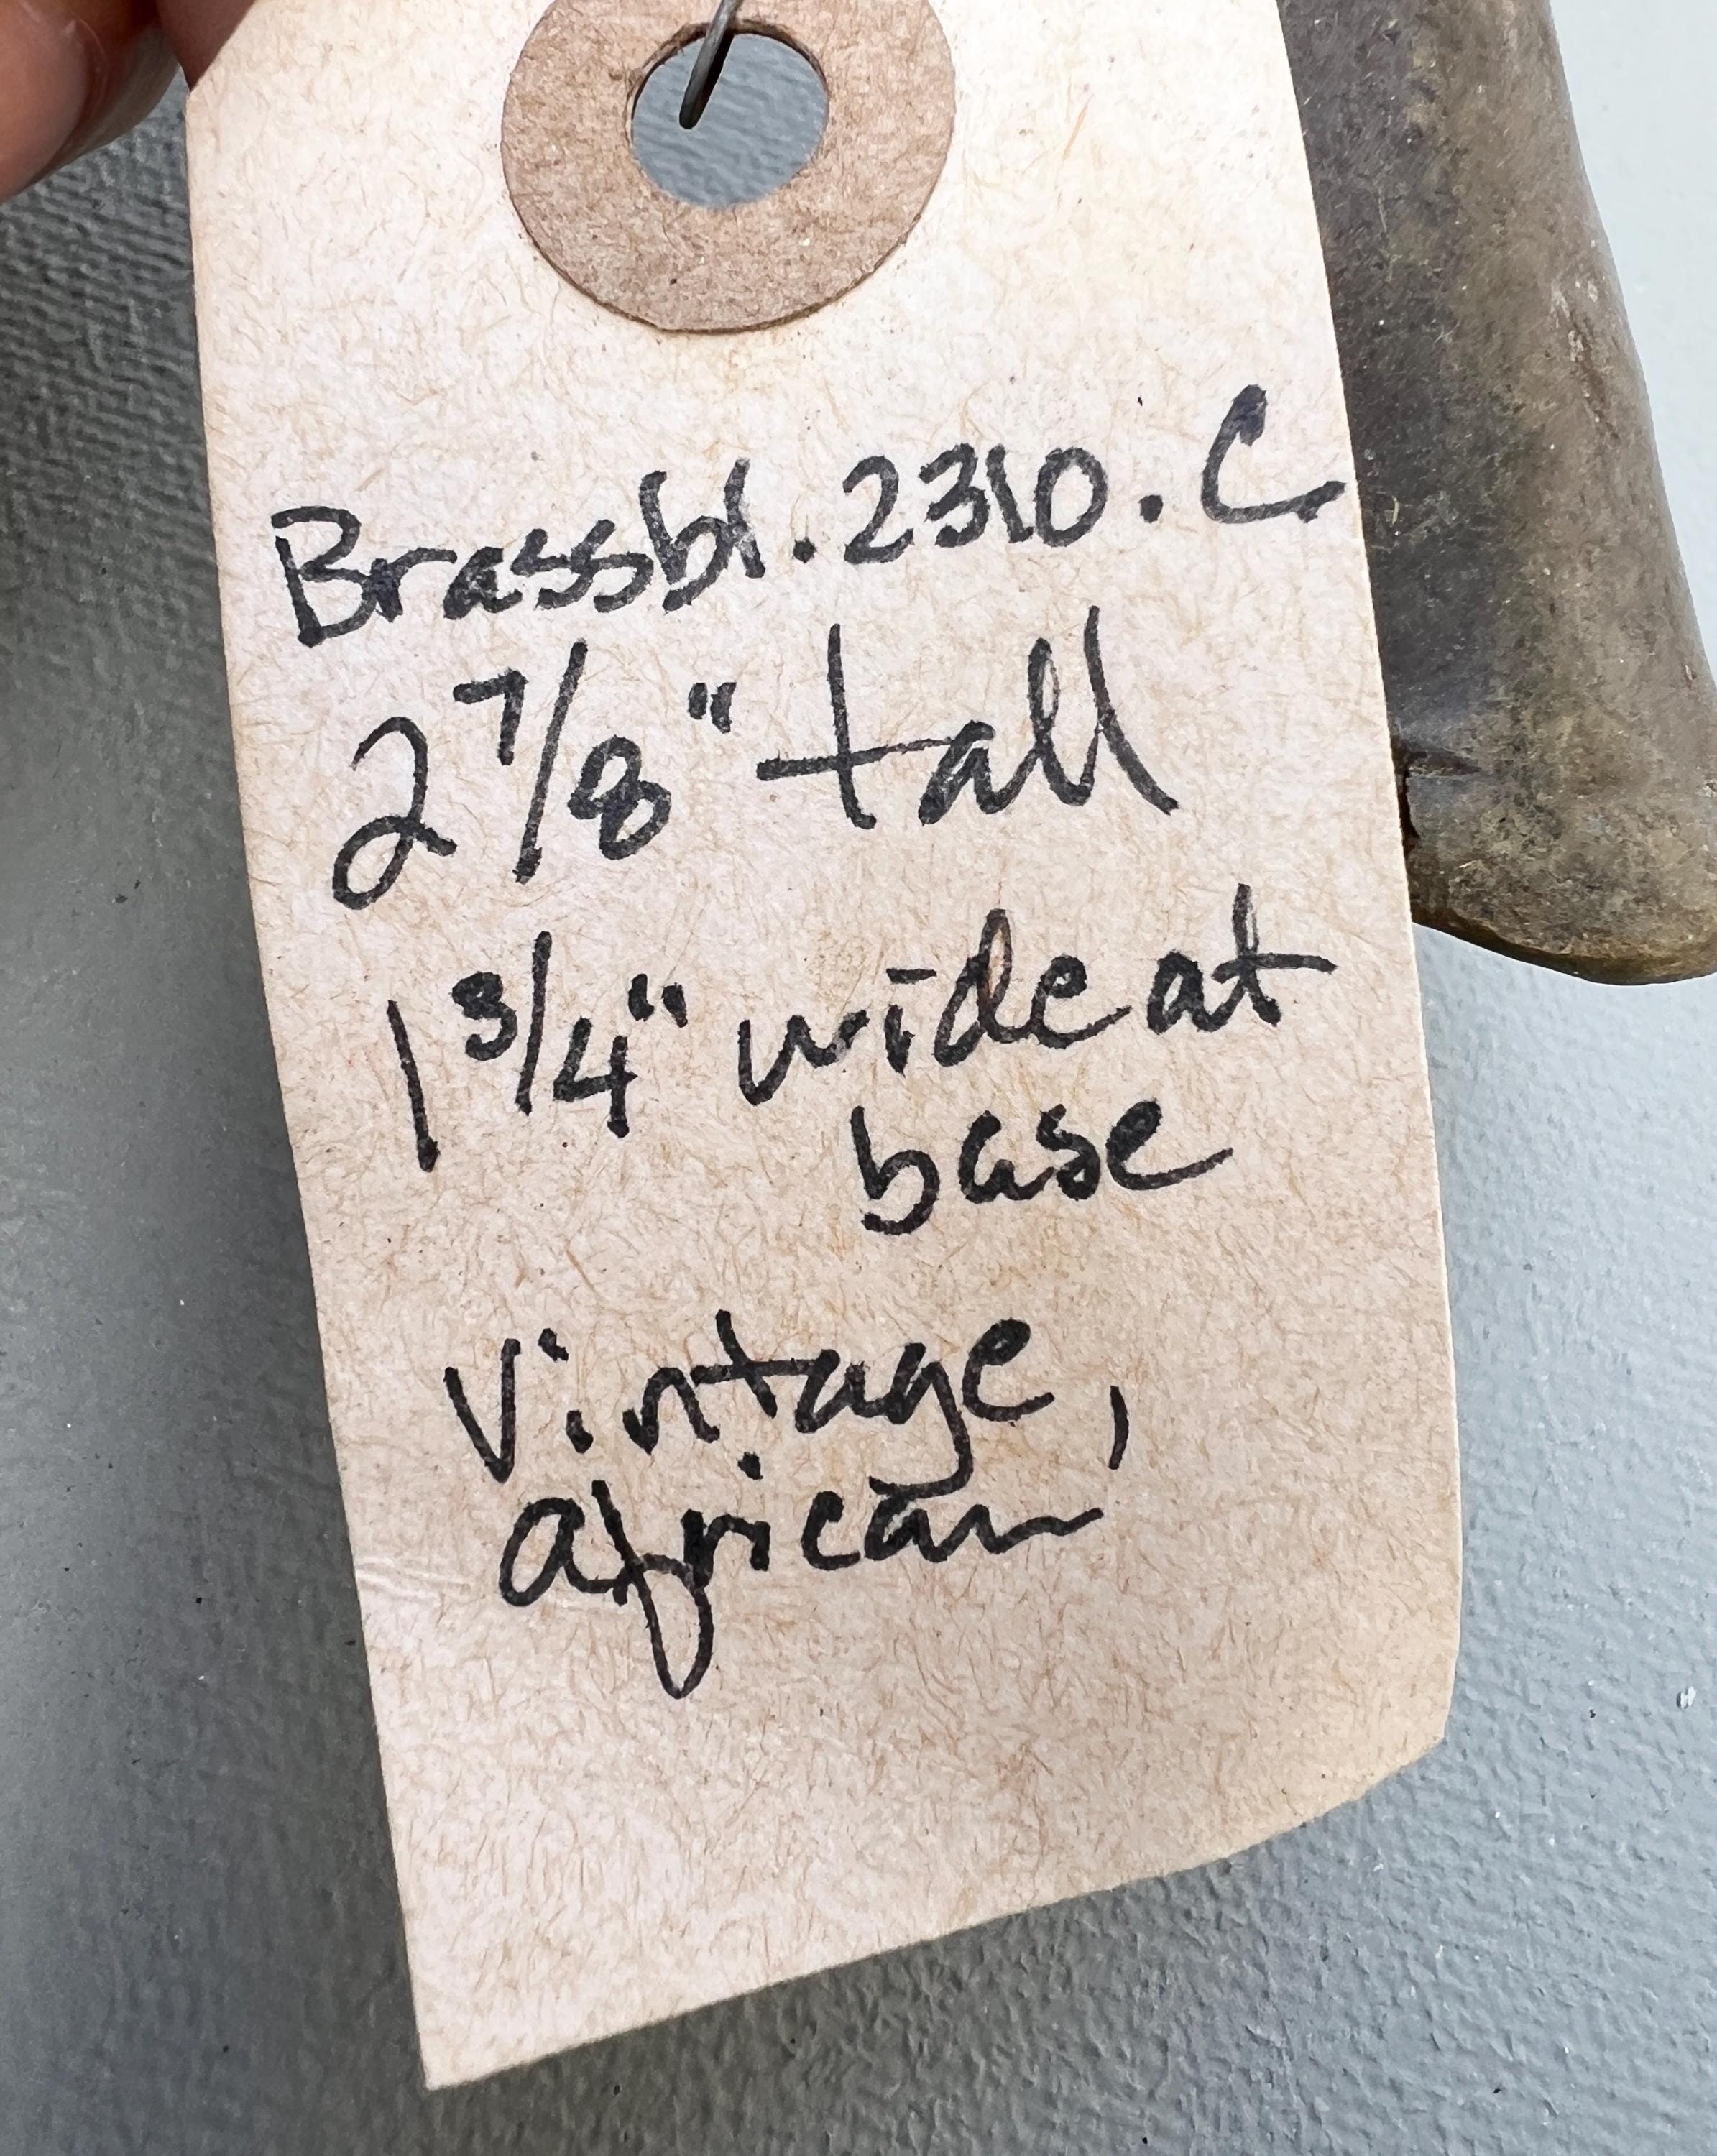 Brassbl.2310.C
2 7/8" tall
1 3/4" wide at
base
Vintage,
african